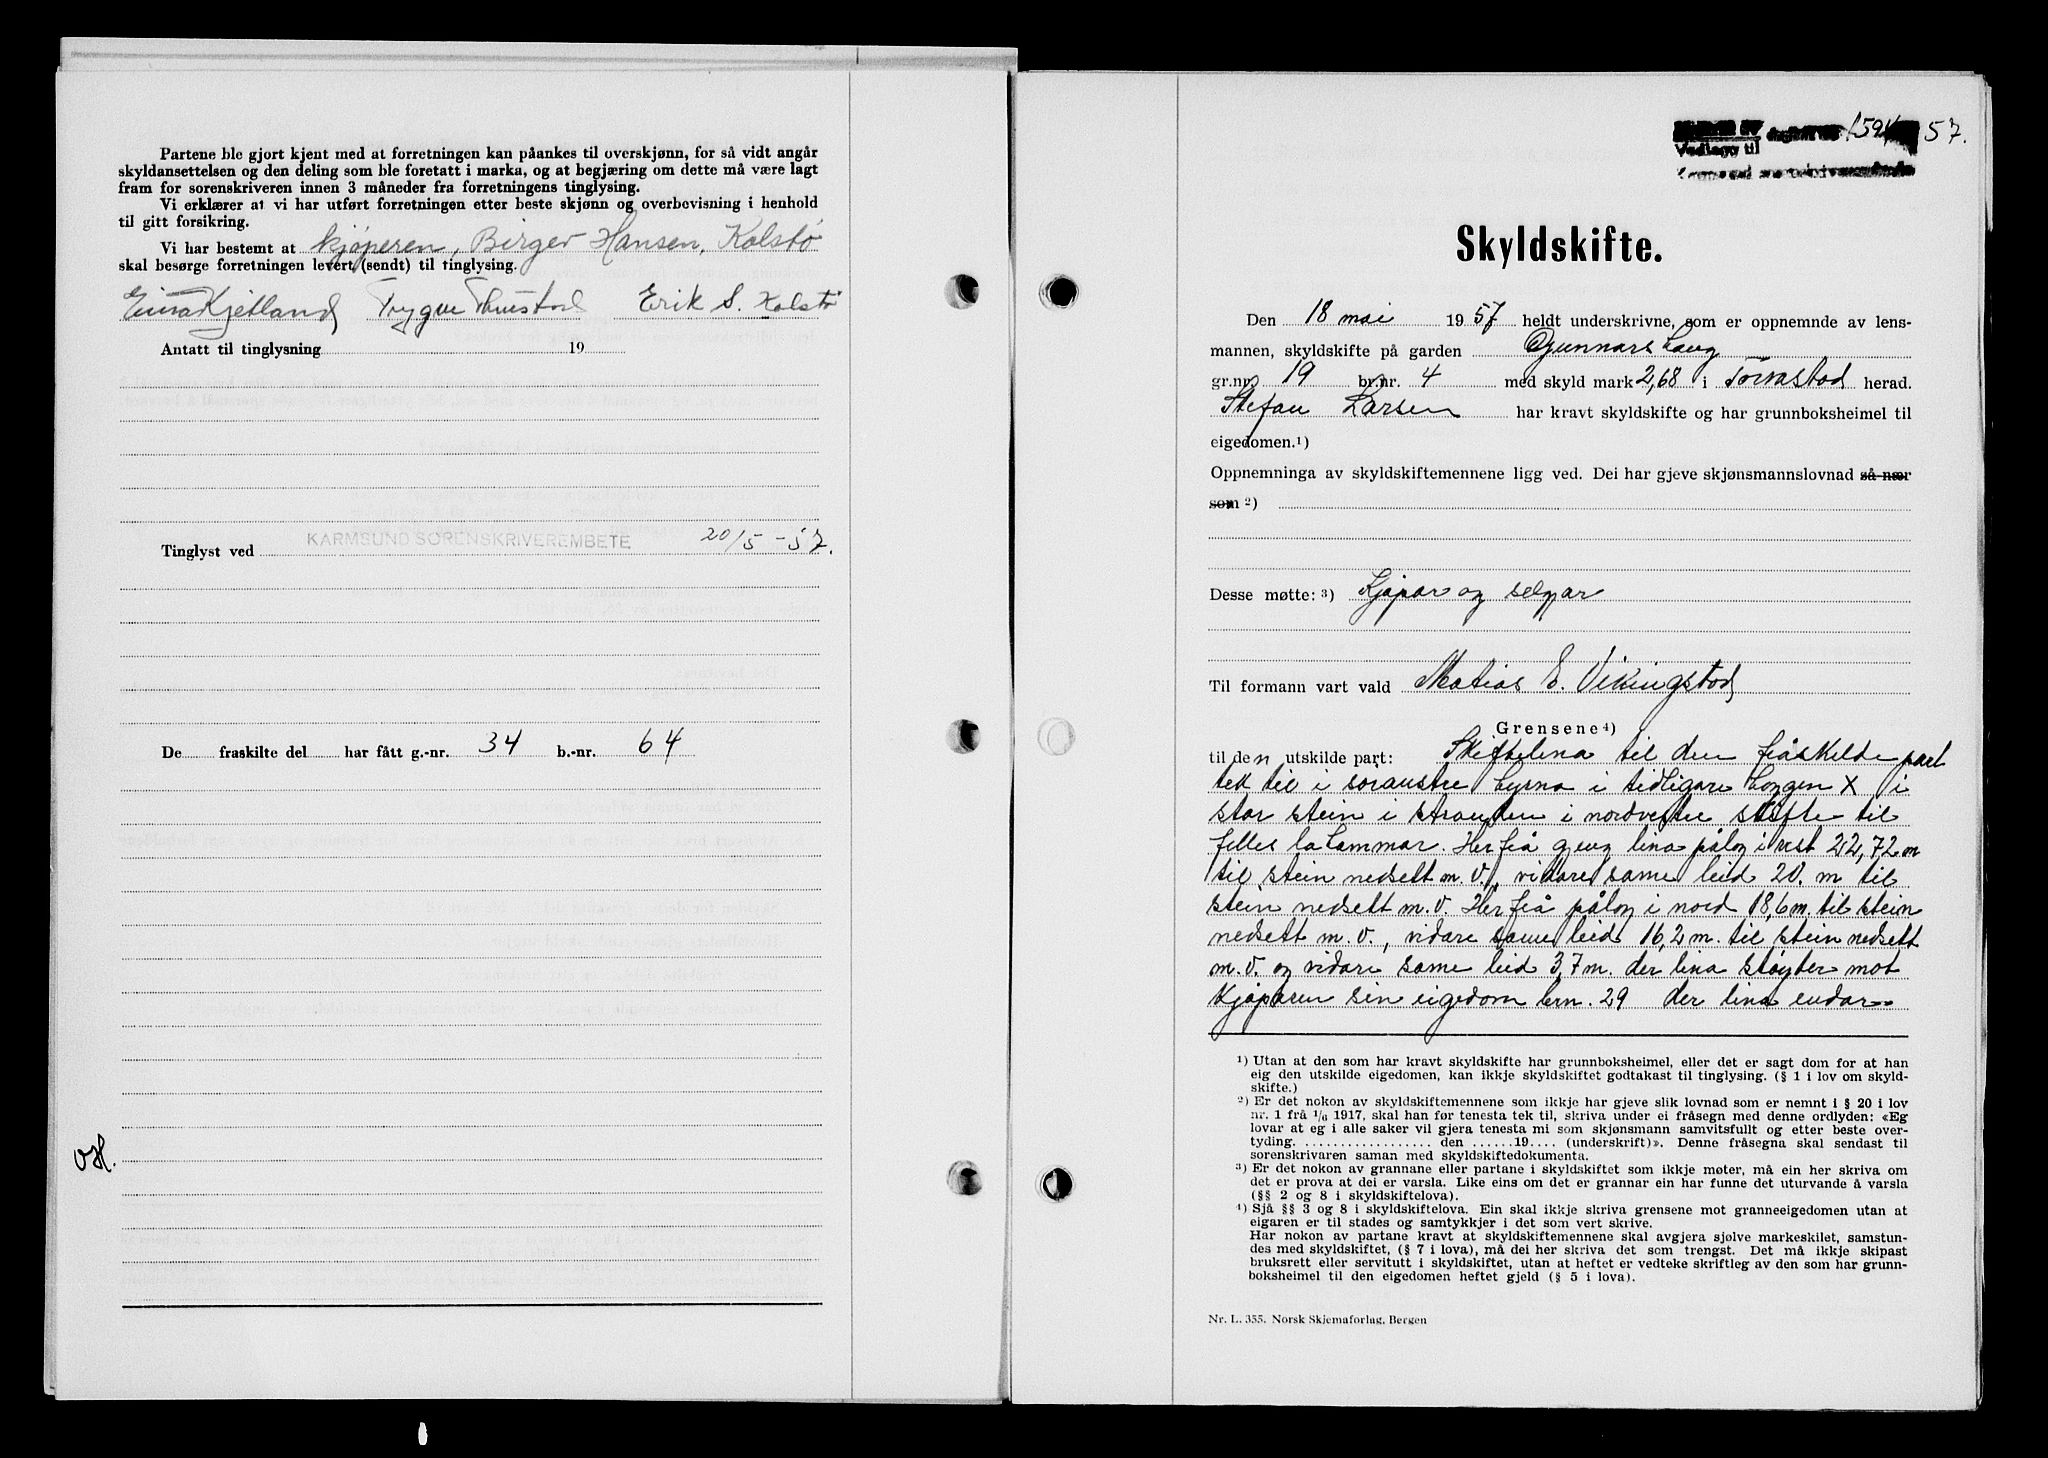 Partene ble gjort kjent med at forretningen kan påankes til overskjønn, for så vidt angår
skyldansettelsen og den deling som ble foretatt i marka, og at begjæring om dette må være lagt
fram for sorenskriveren innen 3 måneder fra forretningens tinglysing.
Vi erklærer at vi har utført forretningen etter beste skjønn og overbevisning i henhold
til gitt forsikring.
Vi har bestemt at kjøperen, Birger Hansen, Kolstø
skal besørge forretningen levert (sendt) til tinglysing.
Einar Kjetland Trygve Erik S. Kolstø
Antatt til tinglysning 19
Tinglyst ved KARMSUND SORENSKRIVEREMBETE 20/5 -57.
De fraskilte del har fått g.-nr. 34 b.-nr. 64
OH.
1594 57.
Vedlegg til
Karmsund sorenskriverembete
Skyldskifte.
Den 18 mai 1957 heldt underskrivne, som er oppnemnde av lens-
mannen, skyldskifte på garden Gunnarshaug
gr.nr. 19 br.nr. 4 med skyld mark 2,68 i Torvastad herad.
Stefan Larsen har kravt skyldskifte og har grunnboksheimel til
eigedomen.1)
Oppnemninga av skyldskiftemennene ligg ved. Dei har gjeve skjønsmannslovnad så nær
som 2)
Desse møtte: 3) Kjøpar og selgar
Til formann vart vald Matias E. Vikingstad
Grensene 4)
til den utskilde part: Skiftelina til den fråskilde part
tek til i søraustre hyrna i tidligare X i
stor stein i stranden i nordvestre skifte til
felles Herfrå geng lina pålag i vest 22,72 m
til stein nedsett m.v., vidare same leid 20. m til
stein nedsett m.v. Herfrå pålag i nord 18,6 m. til stein
nedsett m.v., vidare same leid 16,2 m. til stein nedsett
m.v. og vidare same leid 3,7 m. der lina støyter mot
Kjøparen sin eigedom brn. 29 der lina endar
1) Utan at den som har kravt skyldskifte har grunnboksheimel, eller det er sagt dom for at han
eig den utskilde eigedomen, kan ikkje skyldskiftet godtakast til tinglysing. (§ 1 i lov om skyld-
skifte.)
2) Er det nokon av skyldskiftemennene som ikkje har gjeve slik lovnad som er nemnt i § 20 i lov
nr. 1 frå 1/6 1917, skal han før tenesta tek til, skriva under ei fråsegn med denne ordlyden: «Eg
lovar at eg i alle saker vil gjera tenesta mi som skjønsmann samvitsfullt og etter beste over-
tyding. .................. den ......19.... (underskrift)». Denne fråsegna skal sendast til
sorenskrivaren saman med skyldskiftedokumenta.
3) Er det nokon av grannane eller partane i skyldskiftet som ikkje møter, må ein her skriva om
det er prova at dei er varsla. Like eins om det er grannar ein har funne det uturvande å varsla
(§§ 2 og 8 i skyldskiftelova).
4) Sjå §§ 3 og 8 i skyldskiftelova. Ein skal ikkje skriva grensene mot granneeigedomen utan at
eigaren er til stades og samtykkjer i det som vert skrive.
Har nokon av partane kravt at skyldskiftemennene skal avgjera sjølve markeskilet, samstun-
des med skyldskiftet, (§ 7 i lova), må dei her skriva det som trengst. Det må ikkje skipast
bruksrett eller servitutt i skyldskiftet, utan at heftet er vedteke skriftleg av den som har grunn-
boksheimel til den eigedomen heftet gjeld (§ 5 i lova).
Nr. L. 355. Norsk Skjemaforlag, Bergen